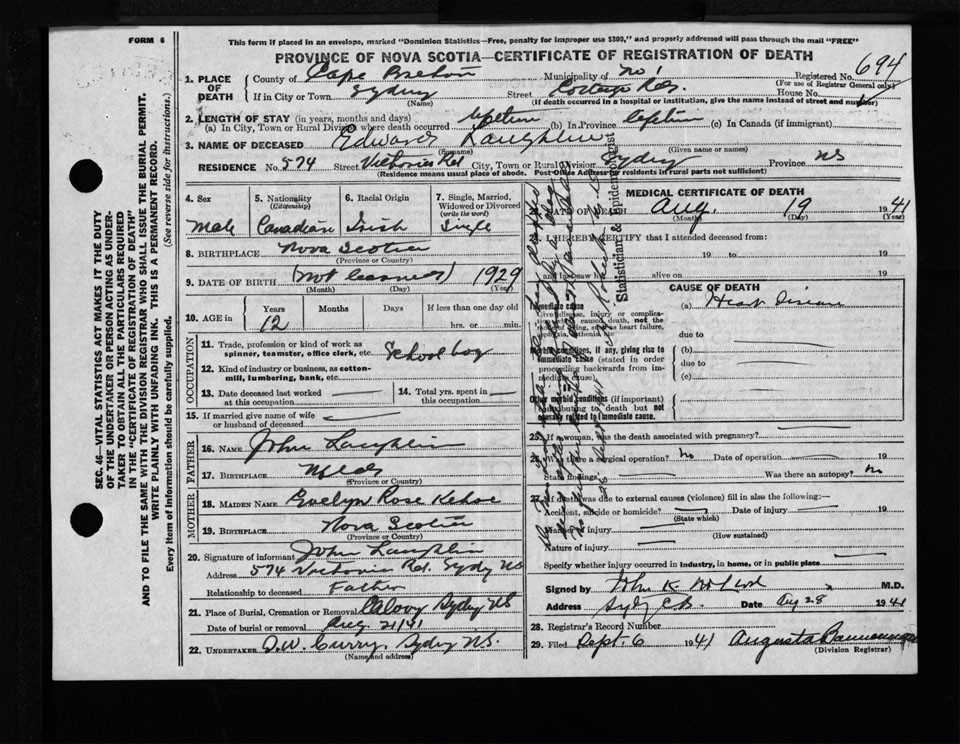 FORM 6
This form if placed in an envelope, marked "Dominion Statistics—Free, penalty for improper use $300," and properly addressed will pass through the mail "FREE"
PROVINCE OF NOVA SCOTIA—CERTIFICATE OF REGISTRATION OF DEATH
Registered No. 694
(For use of Registrar General only)
1. PLACE OF DEATH
County of Cape Breton Municipality of No 1
If in City or Town Sydney Street House No.
(Name) (If death occurred in a hospital or institution, give the name instead of street and number)
2. LENGTH OF STAY (in years, months and days)
(a) In City, Town or Rural Division where death occurred lifetime (b) In Province lifetime (c) In Canada (if immigrant)
3. NAME OF DECEASED Edward Laughlin
(Surname) (Given name or names)
RESIDENCE No. 574 Street Victoria Rd City, Town or Rural Division Sydney Province NS
(Residence means usual place of abode. Post Office Address for residents in rural parts not sufficient)
4. Sex
Male
5. Nationality
(Citizenship)
Canadian
6. Racial Origin
Irish
7. Single, Married, Widowed or Divorced
(write the word)
Single
8. BIRTHPLACE Nova Scotia
(Province or Country)
9. DATE OF BIRTH (not learned) 1929
(Month) (Day) (Year)
10. AGE in
Years Months Days If less than one day
12 hrs. or min.
OCCUPATION
11. Trade, profession or kind of work as spinner, teamster, office clerk, etc. School boy
12. Kind of industry or business, as cotton-mill, lumbering, bank, etc.
13. Date deceased last worked at this occupation
14. Total yrs. spent in this occupation
15. If married give name of wife or husband of deceased
FATHER
16. NAME John Laughlin
17. BIRTHPLACE Nfld
(Province or Country)
MOTHER
18. MAIDEN NAME Evelyn Rose Kehoe
19. BIRTHPLACE Nova Scotia
(Province or Country)
20. Signature of informant John Laughlin
Address 574 Victoria Rd. Sydney NS
Relationship to deceased Father
21. Place of Burial, Cremation or Removal Calvary Sydney NS
Date of burial or removal Aug. 21/41
22. UNDERTAKER D.W. Curry, Sydney NS.
(Name and address)
MEDICAL CERTIFICATE OF DEATH
DATE OF DEATH Aug. 19 1941
(Month) (Day) (Year)
I HEREBY CERTIFY that I attended deceased from:
19 to 19
and last saw h alive on 19
CAUSE OF DEATH
Immediate cause
Give disease, injury or complication which caused death, not the mode of dying, such as heart failure, asphyxia, asthenia etc.
(a) Heart Disease
due to
Morbid conditions, if any, giving rise to immediate cause (stated in order proceeding backwards from immediate cause).
(b)
due to
(c)
Other morbid conditions (if important) contributing to death but not causally related to immediate cause.
25. If a woman, was the death associated with pregnancy?
26. Was there a surgical operation? No Date of operation
State findings Was there an autopsy? No
27. If death was due to external causes (violence) fill in also the following:—
Accident, suicide or homicide? Date of injury 19
(State which)
Manner of injury
(How sustained)
Nature of injury
Specify whether injury occurred in industry, in home, or in public place
Signed by M.D.
Address Sydney C.B. Date Aug 28 1941
28. Registrar's Record Number
29. Filed Sept. 6 1941 Augusta
(Division Registrar)
Statistician & Epidemiologist
SEC. 46—VITAL STATISTICS ACT MAKES IT THE DUTY OF THE UNDERTAKER OR PERSON ACTING AS UNDERTAKER TO OBTAIN ALL THE PARTICULARS REQUIRED IN THE "CERTIFICATE OF REGISTRATION OF DEATH"
AND TO FILE THE SAME WITH THE DIVISION REGISTRAR WHO SHALL ISSUE THE BURIAL PERMIT.
WRITE PLAINLY WITH UNFADING INK. THIS IS A PERMANENT RECORD.
Every item of information should be carefully supplied. (See reverse side for instructions.)